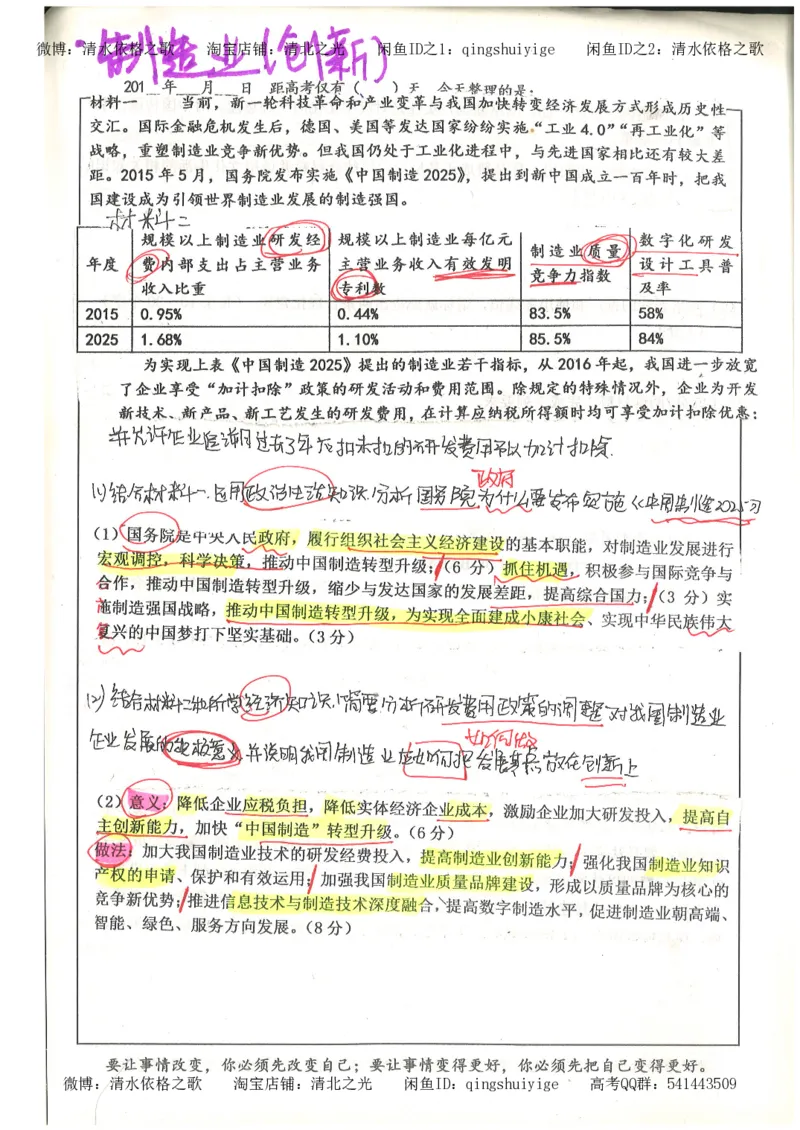 制造业(创新)
微博：清水依格之歌 淘宝店铺：清北之光 闲鱼ID之1：qingshuiyige 闲鱼ID之2：清水依格之歌
201 年 月 日 距高考仅有（ ）天 今天整理的是：
材料一 当前，新一轮科技革命和产业变革与我国加快转变经济发展方式形成历史性
交汇。国际金融危机发生后，德国、美国等发达国家纷纷实施“工业 4.0”“再工业化”等
战略，重塑制造业竞争新优势。但我国仍处于工业化进程中，与先进国家相比还有较大差
距。2015 年 5 月，国务院发布实施《中国制造 2025》，提出到新中国成立一百年时，把我
国建设成为引领世界制造业发展的制造强国。
材料二
年度 规模以上制造业研发经费内部支出占主营业务收入比重 规模以上制造业每亿元主营业务收入有效发明专利数 制造业质量竞争力指数 数字化研发设计工具普及率
2015 0.95% 0.44% 83.5% 58%
2025 1.68% 1.10% 85.5% 84%
为实现上表《中国制造 2025》提出的制造业若干指标，从 2016 年起，我国进一步放宽
了企业享受“加计扣除”政策的研发活动和费用范围。除规定的特殊情况外，企业为开发
新技术、新产品、新工艺发生的研发费用，在计算应纳税所得额时均可享受加计扣除优惠；
并允许企业追溯过去3年应扣未扣的研发费用予以加计扣除.
政府
(1)结合材料一.运用政治生活知识.分析国务院为什么要发布实施《中国制造2025》
（1）国务院是中央人民政府，履行组织社会主义经济建设的基本职能，对制造业发展进行
宏观调控，科学决策，推动中国制造转型升级；（6 分）抓住机遇，积极参与国际竞争与
合作，推动中国制造转型升级，缩少与发达国家的发展差距，提高综合国力；（3 分）实
施制造强国战略，推动中国制造转型升级，为实现全面建成小康社会、实现中华民族伟大
复兴的中国梦打下坚实基础。（3 分）
(2)结合材料二和所学经济知识.简要分析研发费用政策的调整对我国制造业
如何做
企业发展的积极意义,并说明我国制造业应如何把发展基点放在创新上
（2）意义：降低企业应税负担，降低实体经济企业成本，激励企业加大研发投入，提高自
主创新能力，加快“中国制造”转型升级。（6 分）
做法：加大我国制造业技术的研发经费投入，提高制造业创新能力；强化我国制造业知识
产权的申请、保护和有效运用；加强我国制造业质量品牌建设，形成以质量品牌为核心的
竞争新优势；推进信息技术与制造技术深度融合，提高数字制造水平，促进制造业朝高端、
智能、绿色、服务方向发展。（8 分）
要让事情改变，你必须先改变自己；要让事情变得更好，你必须先把自己变得更好。
微博：清水依格之歌 淘宝店铺：清北之光 闲鱼ID：qingshuiyige 高考QQ群：541443509